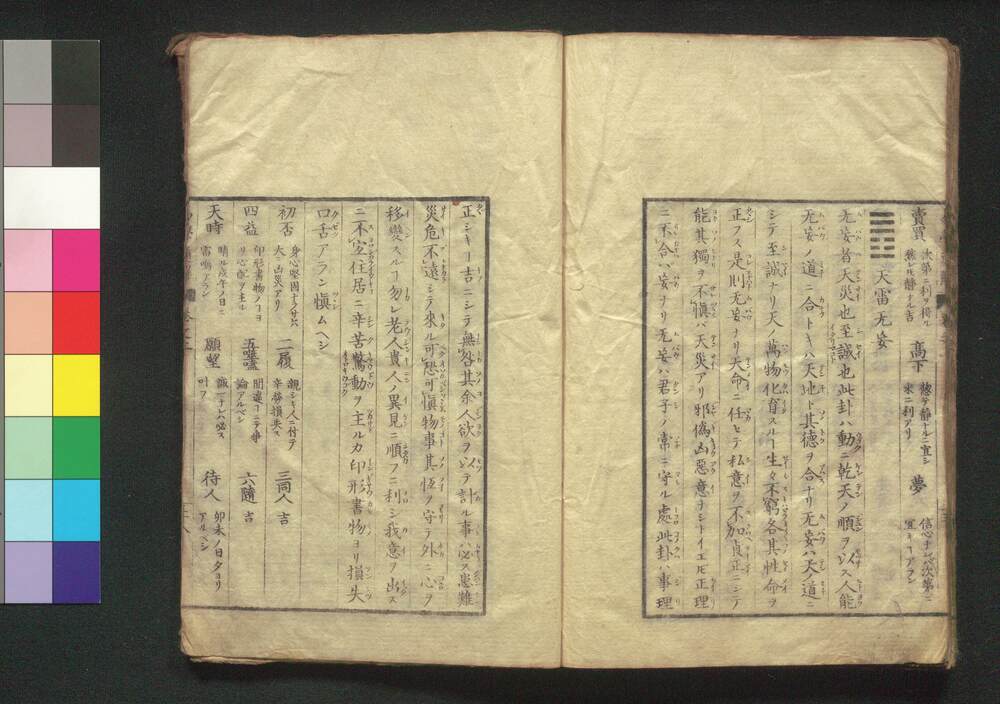 賣買 次第ニ利ヲ得ル 惣ハル静ナル吉 高下 惣テ静ナルニ宜シ 米ニ利アリ 夢 信心ナレバ次第ニ宜キヿアラン
天雷无妄
无妄者天災也至誠也此卦ハ動ニ乾天ノ順ヲ以ス人能
无妄ノ道ニ合トキハ天地ト其德ヲ合ナリ无妄ハ天ノ道ニ
シテ至誠ナリ天ノ萬物化育スルヿ生々不窮各其性命ヲ
正フス是則无妄ナリ天命ニ任セテ私意ヲ不加貞正ニシテ
能其獨ヲ不愼バ天災アリ邪僞凶惡意ナシトイエ𪜈正理
ニ不合ハ妄ナリ无妄ハ君子ノ常ニ守ル處此卦ハ事理
正シキヿ吉ニシテ無咎其余人欲ヲ以テ計ル事ハ必ス患難
災危不遠シテ來ル可恐可愼物事其恆ヲ守テ外ニ心ヲ
移變スルヿ勿レ老人貴人ノ異見ニ順フニ利シ我意ヲ出ス
ニ不宜住居ニ辛苦驚動ヲ主ルカ印形書物ヨリ損失
口舌アラン愼ムヘシ
初否 身心堅固ナラサレハ大ニ凶災アリ 二履 親シキ人ニ付テ辛勞損失ス 三同人 吉
四益 印形書物ノヿヨリ心配ヲ主ル 五噬嗑 間違ヿニテ爭論アルベシ 六隨 吉
天時 晴ル戌午ノ日ニ雷鳴アラン 願望 誠ヿナレバ必ス叶フ 待人 卯未ノ日夕ヨリアルベシ